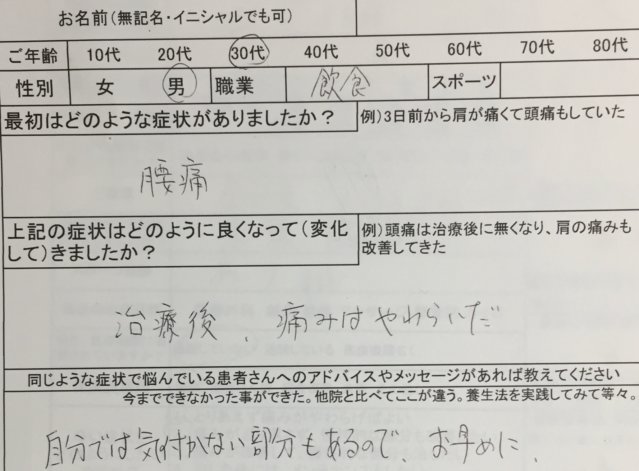 お名前(無記名・イニシャルでも可)
ご年齢 10代 20代 30代 40代 50代 60代 70代 80代
性別 女 男 職業 飲食 スポーツ
最初はどのような症状がありましたか? 例)3日前から肩が痛くて頭痛もしていた
腰痛
上記の症状はどのように良くなって(変化 例)頭痛は治療後に無くなり、肩の痛みも
して)きましたか? 改善してきた
治療後、痛みはやわらいだ
同じような症状で悩んでいる患者さんへのアドバイスやメッセージがあれば教えてください
今までできなかった事ができた。他院と比べてここが違う。養生法を実践してみて等々。
自分では気付かない部分もあるので、お早めに、